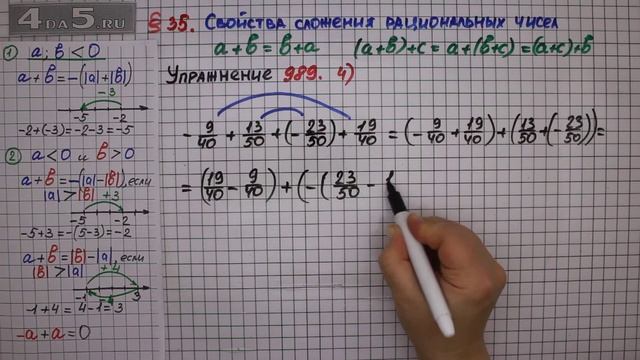 4DA5.RU
§ 35. Свойства сложения рациональных чисел
a+b=b+a (a+b)+c = a+(b+c) = (a+c)+b
Упражнение 989. 4)
- 9/40 + 13/50 + (- 23/50) + 19/40 = (- 9/40 + 19/40) + (13/50 + (- 23/50)) =
= (19/40 - 9/40) + (-(23/50 - 1
1) a; b < 0
a+b = -(|a|+|b|)
-3
-5 -2
-2+(-3)=-2-3=-5
2) a<0 и b>0
a+b=-(|a|-|b|), если
|a|>|b| +3
-5 -2
-5+3=-(5-3)=-2
a+b=|b|-|a|, если
|b|>|a| +4
-1 3
-1+4=4-1=3
-a+a=0